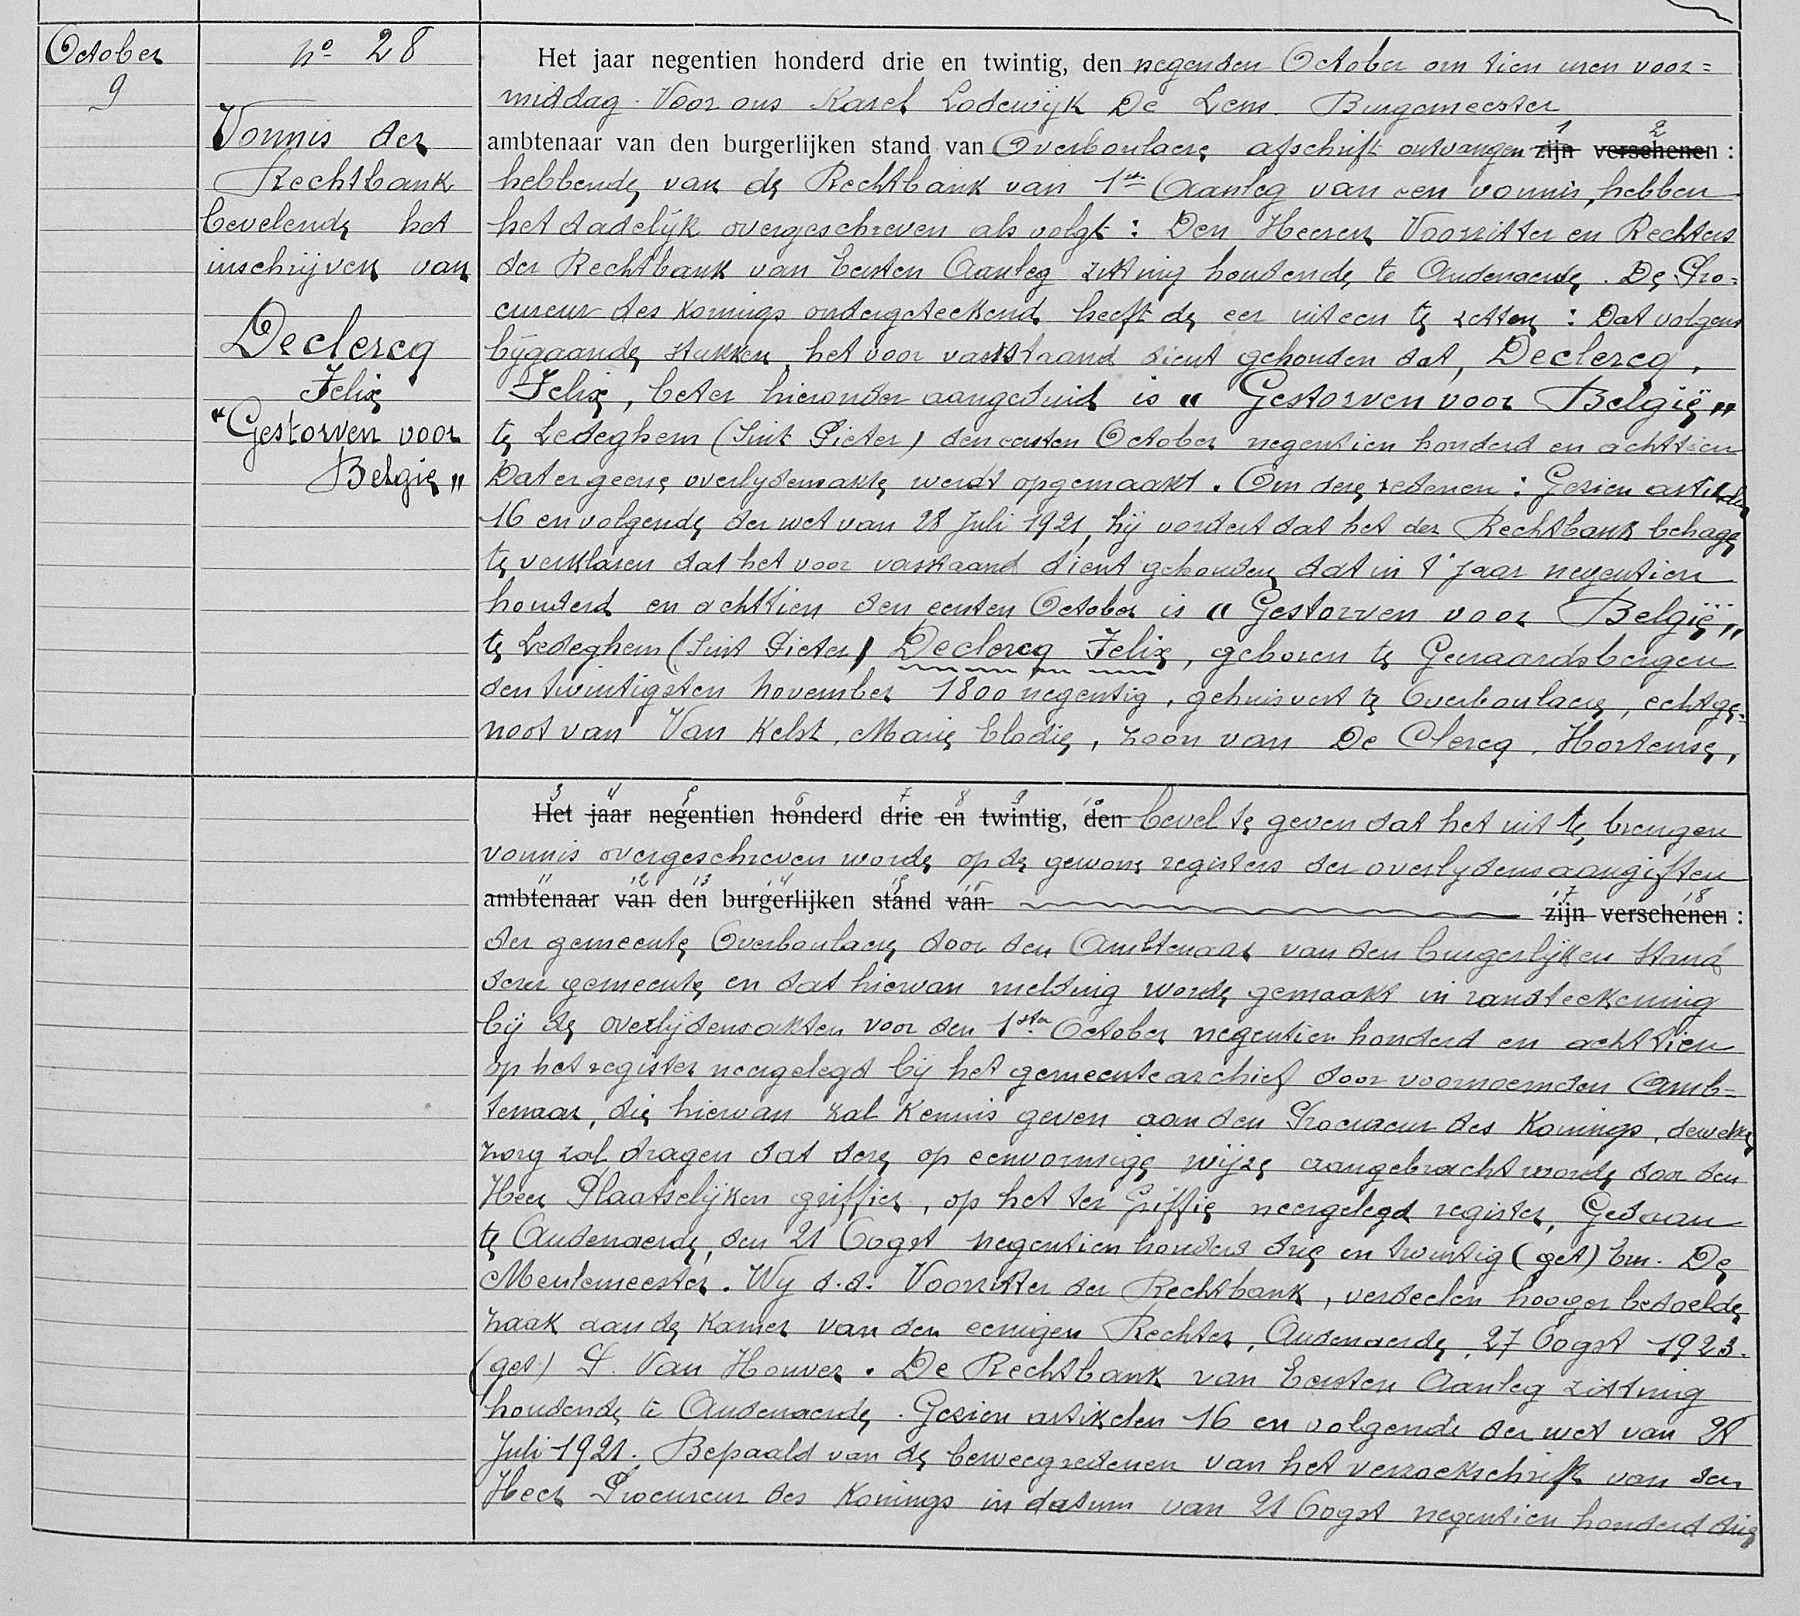 October
9
nº 28
Vonnis der
Rechtbank
bevelende het
inschrijven van
Declercq
Felix
"Gestorven voor
België"
Het jaar negentien honderd drie en twintig, den negenden October om tien uren voor=
middag. Voor ons Karel Lodewijk De Lens Burgemeester
ambtenaar van den burgerlijken stand van Overboulaere afschrift ontvangen zijn verschenen :
1 2
hebbende van de Rechtbank van 1en Aanleg van een vonnis, hebben
het dadelijk overgeschreven als volgt : Den Heeren Voorzitter en Rechters
der Rechtbank van Eersten Aanleg zitting houdende te Audenaerde. De Pro=
cureur des Konings ondergeteekend heeft de eer uiteen te zetten : Dat volgens
bijgaande stukken, het voor vaststaand dient gehouden dat, Declercq,
Felix, beter hieronder aangeduid is "Gestorven voor België"
te Ledeghem (Sint Pieter) den eersten October negentien honderd en achttien
Dat er geene overlydensakte werdt opgemaakt. Om deze redenen : Gezien artikelen
16 en volgende der wet van 28 Juli 1921, hij vordert dat het der Rechtbank behage
te verklaren dat het voor vaststaand dient gehouden dat in 't jaar negentien
honderd en achttien den eersten October is "Gestorven voor België"
te Ledeghem (Sint Pieter) Declercq Felix, geboren te Geeraardsbergen
den twintigsten november 1800 negentig, gehuisvest te Overboulaere, echtge=
noot van Van Kelst, Marie Elodie, zoon van De Clercq, Hortense,
3 4 5 6 7 8 9 10
Het jaar negentien honderd drie en twintig, den bevel te geven dat het uit te brengen
vonnis overgeschreven worde op de gewone registers der overlydensaangiften
11 12 13 14 15 16 17 18
ambtenaar van den burgerlijken stand van zijn verschenen :
der gemeente Overboulaere door den Ambtenaar van den burgerlijken stand
dezer gemeente en dat hiervan melding worde gemaakt in randteekening
bij de overlijdensakten voor den 1sten October negentien honderd en achttien
op het register neergelegd bij het gemeentearchief door voornoemden Amb=
tenaar, die hiervan zal kennis geven aan den Procureur des Konings, dewelke
zorg zal dragen dat deze op eenvormige wijze aangebracht worde door den
Heer Plaatselijken griffier, op het ter Griffie neergelegd register, Gedaan
te Audenaerde, den 21 Oogst negentien honderd drie en twintig (get) Em. De
Meulemeester. Wy d.d. Voorzitter der Rechtbank, verdeelen hooger bedoelde
zaak aan de Kamer van den eenigen Rechter, Audenaerde, 27 Oogst 1923.
(get) Van Houver. De Rechtbank van Eersten Aanleg zitting
houdende te Audenaerde. Gezien artikelen 16 en volgende der wet van 28
Juli 1921. Bepaald van de beweegredenen van het verzoekschrift van den
Heer Procureur des Konings in datum van 21 Oogst negentien honderd drie